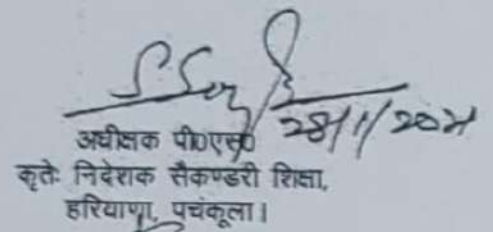 28/1/202
अधीक्षक पी0एस0
कृतेः निदेशक सैकण्डरी शिक्षा,
हरियाणा, पचंकूला।